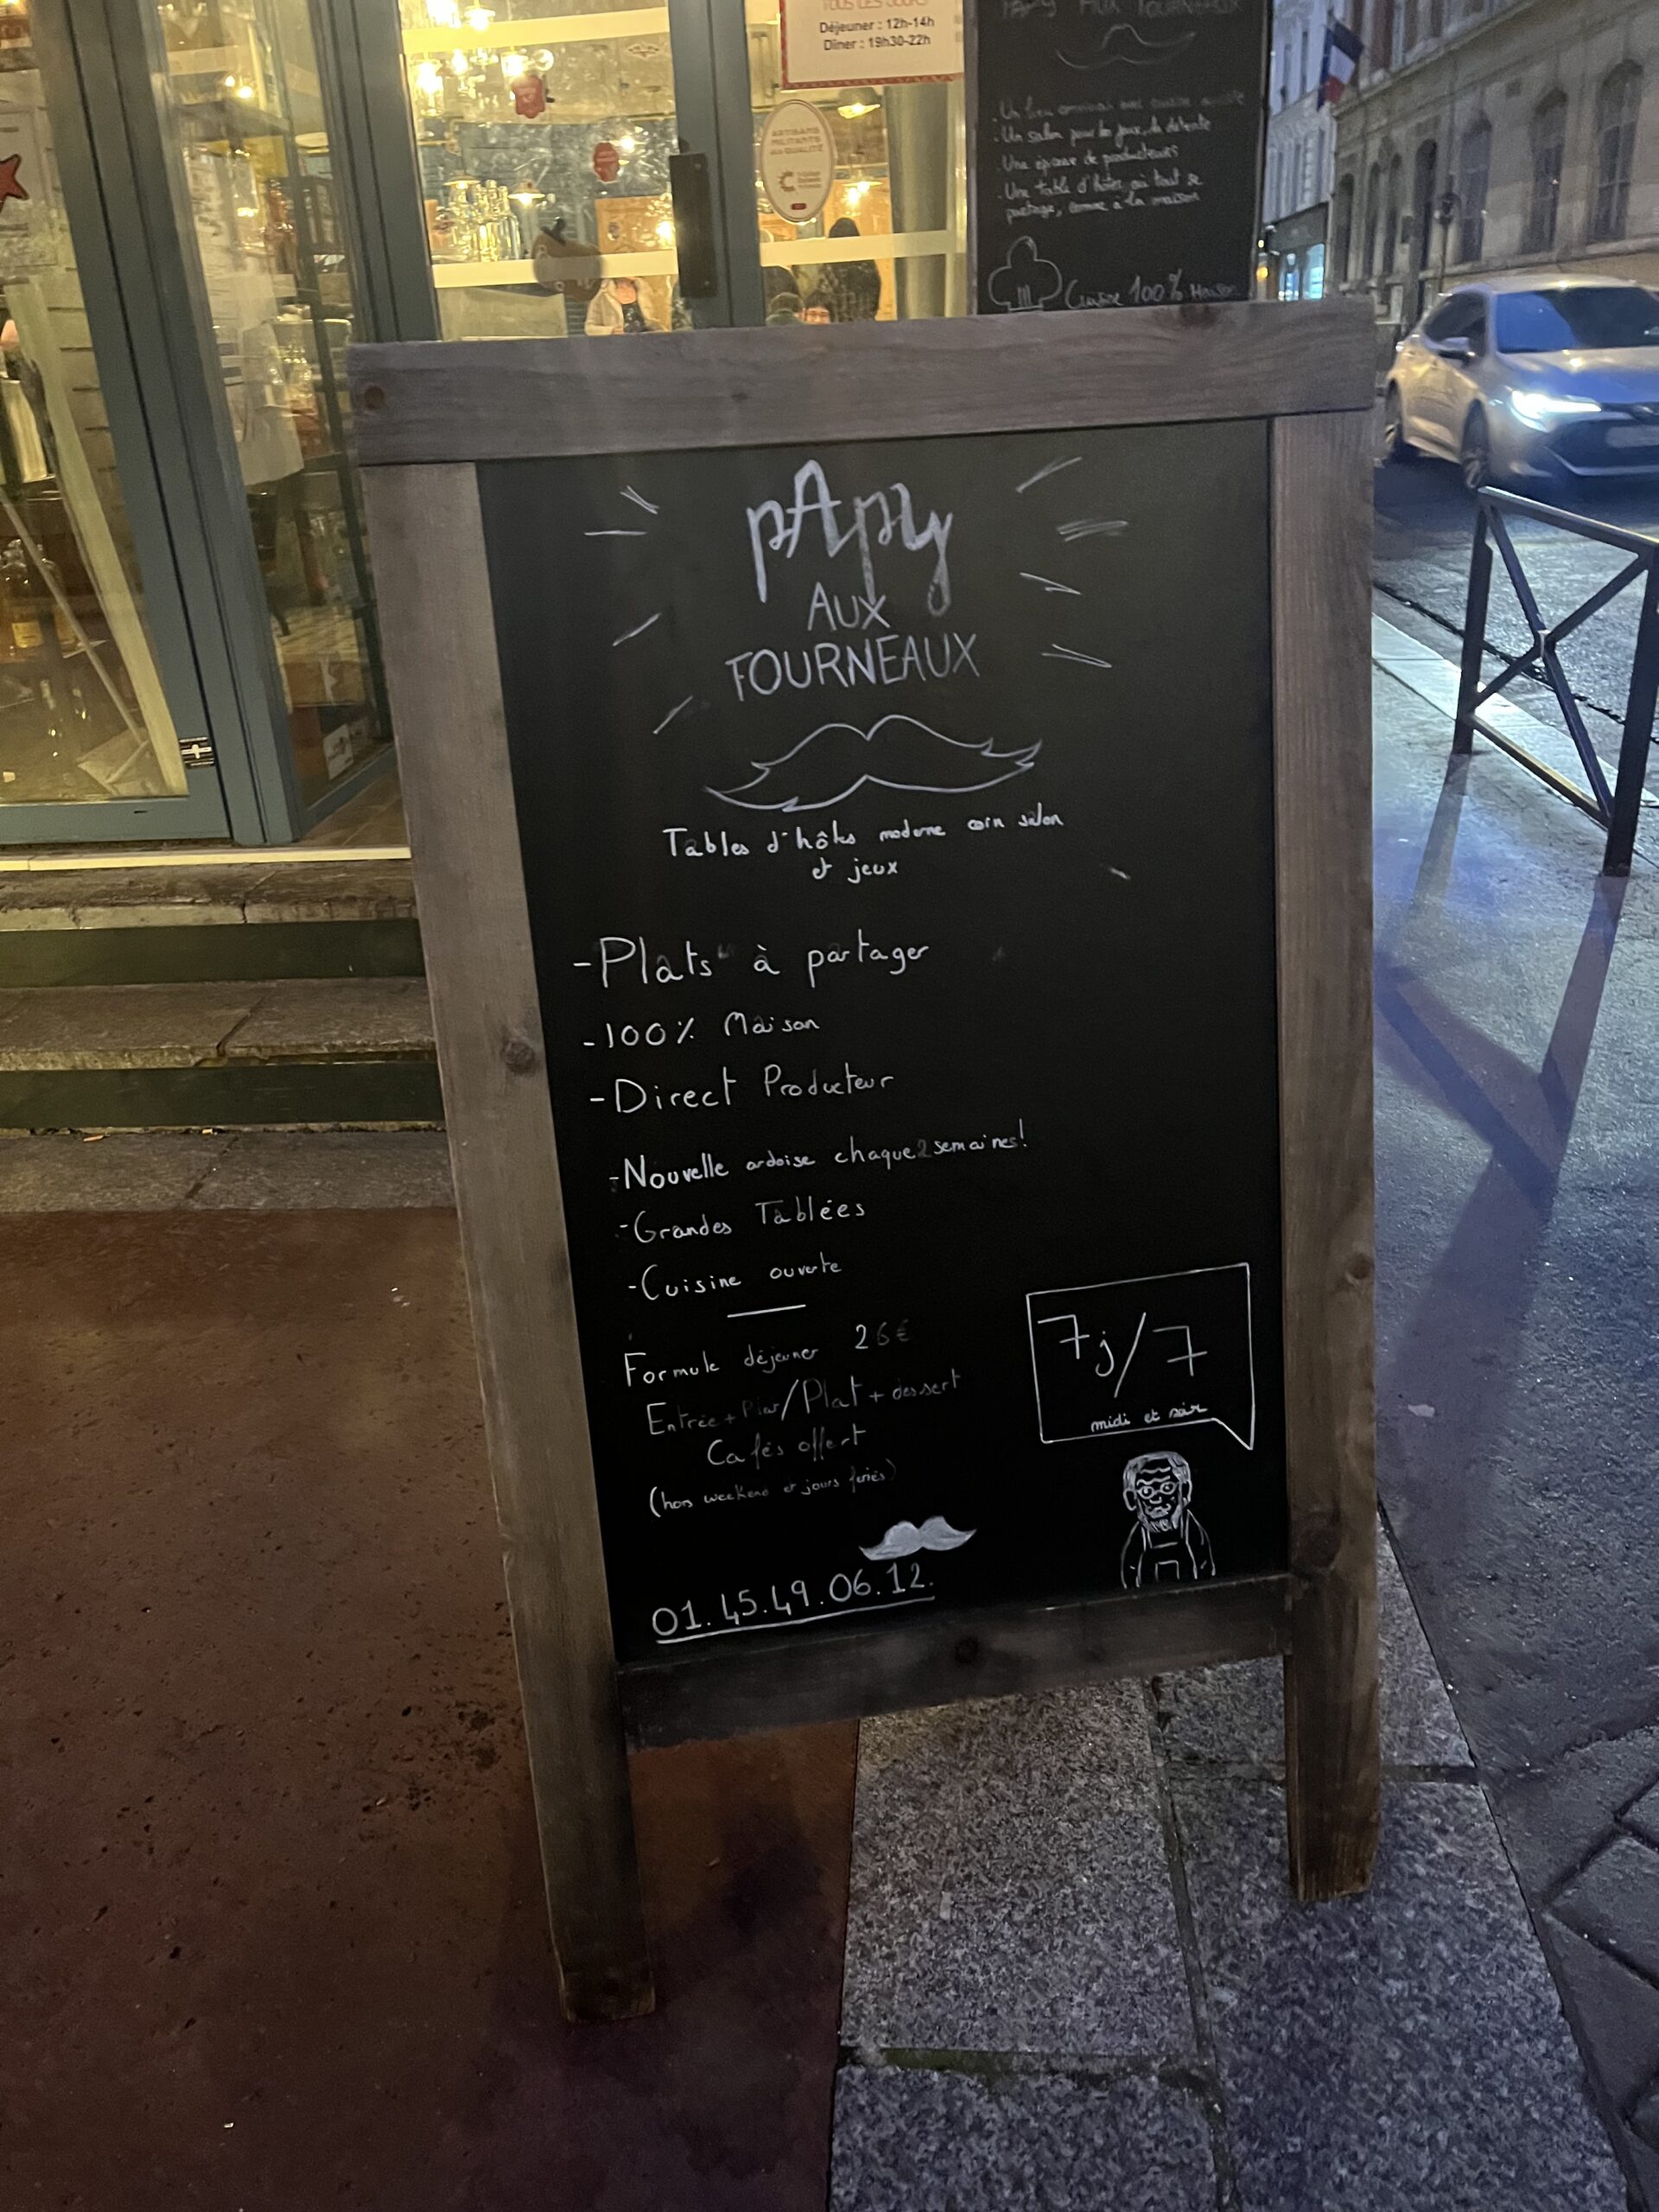 TOUS LES JOURS
Déjeuner : 12h-14h
Dîner : 19h30-22h
ARTISANS
MILITANTS
DE QUALITÉ
PAPY AUX FOURNEAUX
. Un lieu convivial avec cuisine ouverte
. Un salon pour les jeux, la détente
. Une épicerie de producteurs
. Une table d'hôtes où tout se
partage, comme à la maison
Cuisine 100% Maison
pApy
AUX
FOURNEAUX
Tables d'hôtes moderne coin salon
et jeux
-Plats à partager
-100% Maison
-Direct Producteur
-Nouvelle ardoise chaque 2 semaines!
-Grandes Tablées
-Cuisine ouverte
Formule déjeuner 26€
Entrée + Plat/Plat + dessert
Cafés offert
(hors weekend et jours feriés)
7j/7
midi et soir
01.45.49.06.12.